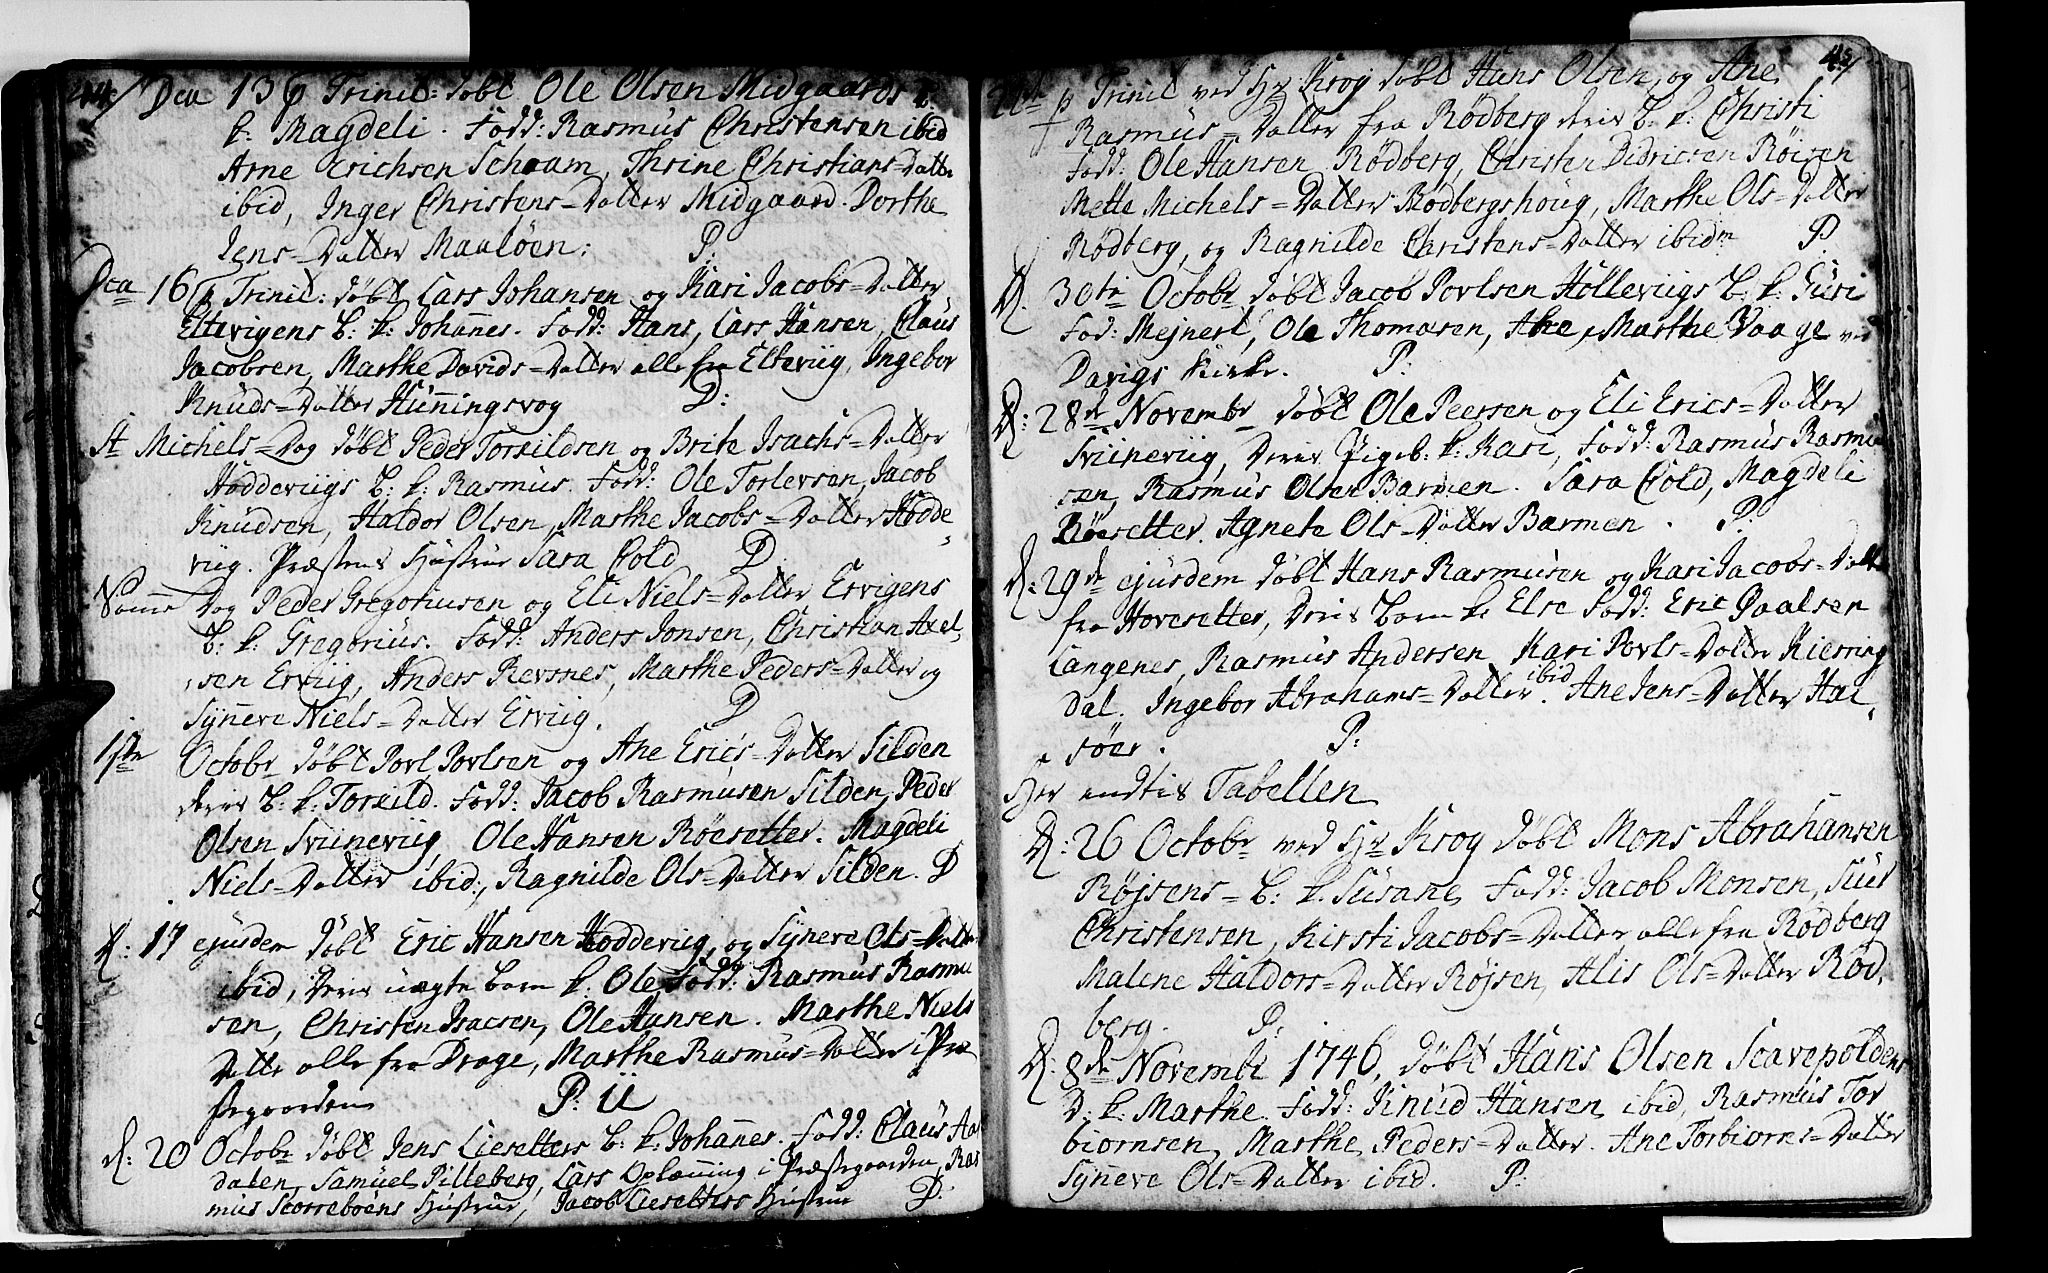 44/ Dca 13 p Trinit: døbt Ole Olsen Midgaards B:
k: Magdeli. Fadd: Rasmus Christensen ibid
Arne Erichsen Schaam, Thrine Christians=Datter
ibid, Inger Christens=Datter Midgaard. Dorthe
Jens=Datter Maaløen: P:
Dca 16 p Trinit: døbt Lars Johansen og Kari Jacobs=Datter
Eltevigens B: k: Johannes. Fadd: Hans, Lars Hansen, Claus
Jacobsen, Marthe Davids=Datter alle fra Elteviig, Ingebor
Knuds=Datter Hunningsvog D:
St Michels=Dag døbt Peder Torkildsen og Brite Isachs=Datter
Hoddeviigs B: k: Rasmus. Fadd: Ole Torlevsen, Jacob
Knudsen, Haldor Olsen, Marthe Jacobs=Datter Hodde
viig. Præstens Hustrue Sara Cold D
Samme Dag Peder Gregoriusen og Eli Niels=Datter Ervigens
B: k: Gregorius. Fadd: Anders Jonsen, Christian Axel,
sen Erviig, Anders Revsnes, Marthe Peders=Datter og
Synneve Niels=Datter Erviig. D
17de Octobr døbt Povl Povlsen og Ane Erics=Datter Silden
deris B: k: Torkild. Fadd: Jacob Rasmusen Silden, Peder
Olsen Sviineviig, Ole Hansen Røesetter. Magdeli
Niels=Datter ibid., Ragnilde Ols=Datter Silden. D
D: 17 ejusdem døbt Eric Hansen Hoddeviig, og Synneve Ols=Datter
ibid, deris uægte barn k: Ole, Fadd: Rasmus Rasmu
sen, Christen Isacsen, Ole Hansen. Marthe Niels
Datter alle fra Drage, Marthe Rasmus=Datter i Præ
stegaarden P: U
d: 20 Octobr døbt Jens Liesetters B: k: Johannes. Fadd: Claus Aar
dalen, Samuel Pilleberg, Lars Oplænning i Præstegaarden, Ras
mus Scorrebøens Hustrue, Jacob Liesetters Hustrue D:
45/
p Trinit ved Hr Krog døbt Hans Olsen, og Ane
Rasmus=Datter fra Rødberg deris B: k: Christi
Fadd: Ole Hansen Rødberg, Christen Didricsen Røisen
Mette Michels=Datter Rødbergshoug, Marthe Ols=Datter
Rødberg, og Ragnilde Christens=Datter ibidm P
D. 30te Octobr døbt Jacob Povlsen Hølleviigs B: k: Guri
Fad: Mejnert, Ole Thomasen, Ane, Marthe Vaage ved
Davigs Kirke. P:
D: 28de Novembr døbt Ole Peersen og Eli Erics=Datter
Sviineviig, deris Pigeb: k: Kari, Fadd: Rasmus Rasmu
sen, Rasmus Olsen Barmen. Sara Cold, Magdeli
Røesetter, Agnete Ols=Datter Barmen. P:
D: 29de ejusdem døbt Hans Rasmusen og Kari Jacobs=Datt
fra Hovesetter, deris Barn k: Else Fadd: Eric Paalsen
Langenes, Rasmus Andersen, Kari Povls=Datter Kierring
dal. Ingebor Abrahams=Datter ibid. Ane Jens=Datter Hal,
søer. P:
Her endtis Tabellen
D: 26 Octobr ved Hr Krog døbt Mons Abrahansen
Røjsens= B: k: Susane, Fadd: Jacob Monsen, Siur
Christensen, Kirsti Jacobs=Datter alle fra Rødberg
Malene Haldors=Datter Røjsen, Alis Ols=Datter Rød,
berg. P:
D: 8de Novembr 1746, døbt Hans Olsen Scavepoldens
D: k: Marthe. Fadd: Knud Hansen ibid, Rasmus Tor
biørnsen, Marthe Peders=Datter. Ane Torbiørns=Datter
Synneve Ols=Datter ibid. P: